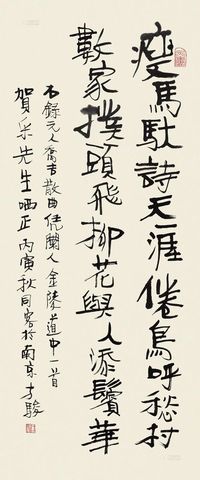 瘦馬馱詩天一涯倦鳥呼愁村
數家撲頭飛柳花與人添鬢華
右錄元人喬吉散曲凭闌人金陵道中一首
賀先生哂正丙寅秋同客於南京方駿